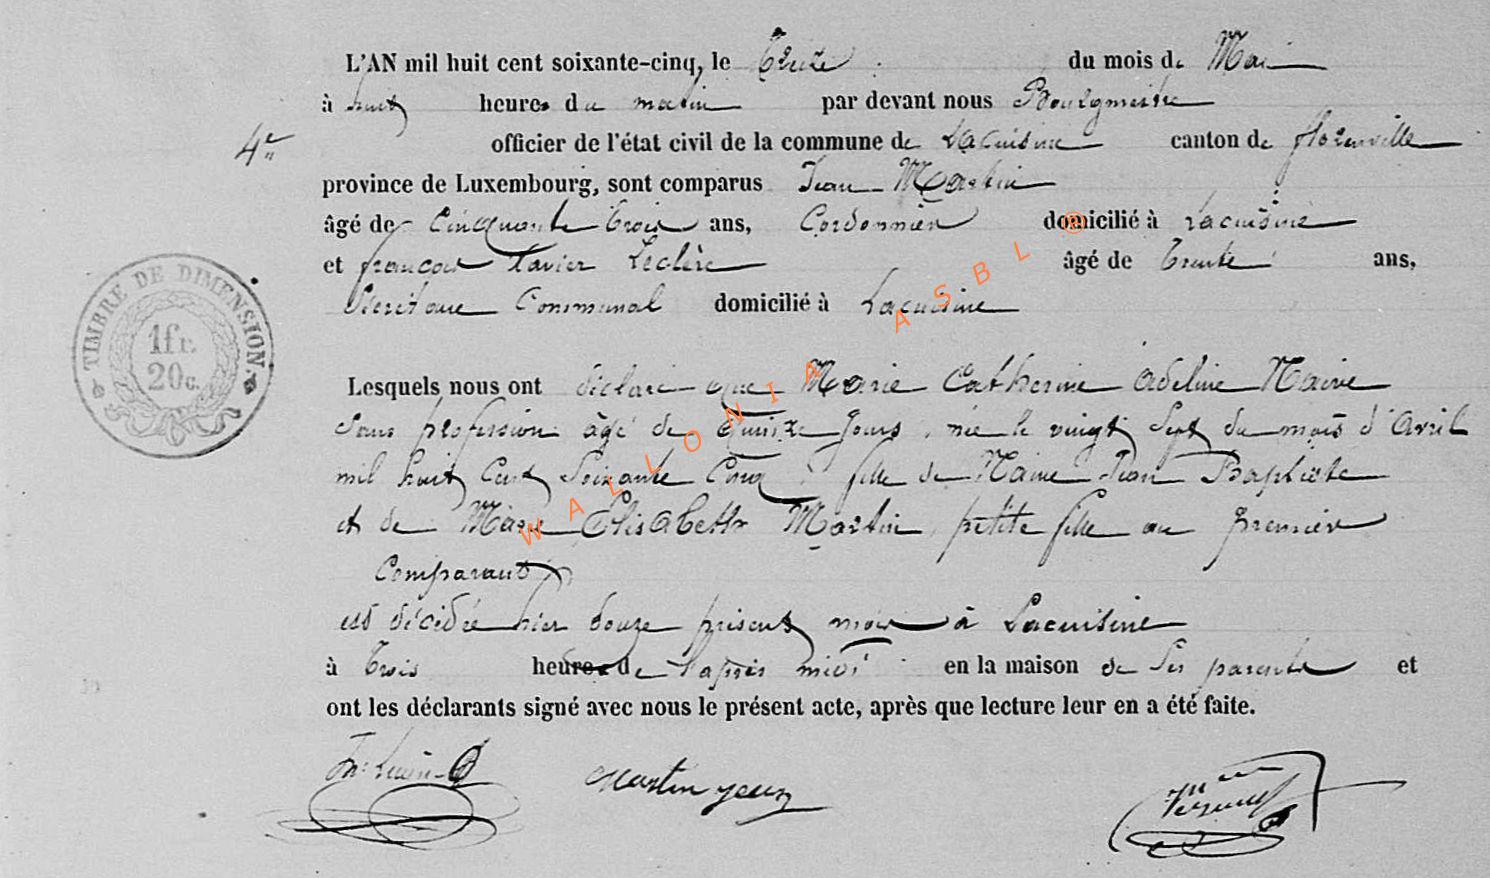 L'AN mil huit cent soixante-cinq, le treize du mois de Mai
à huit heures du matin par devant nous Bourgmestre
4e officier de l'état civil de la commune de Lacuisine canton de florenville
province de Luxembourg, sont comparus Jean Martin
âgé de Cinquante trois ans, Cordonnier domicilié à Lacuisine
et françois Xavier Leclère âgé de trente ans,
Secrétaire Communal domicilié à Lacuisine
TIMBRE DE DIMENSION.
1fr.
20c.
Lesquels nous ont déclaré que Marie Catherine Adeline Naive
Sans profession âgé de quinze jours, née le vingt Sept du mois d'Avril
mil huit Cent Soixante Cinq, fille de Naive Jean Baptiste
et de Marie Elisabeth Martin, petite fille au premier
Comparant
est décédée hier douze présent mois à Lacuisine
à trois heures de l'après midi en la maison de Ses parents et
ont les déclarants signé avec nous le présent acte, après que lecture leur en a été faite.
Martin jean
WALLONIA ASBL ®